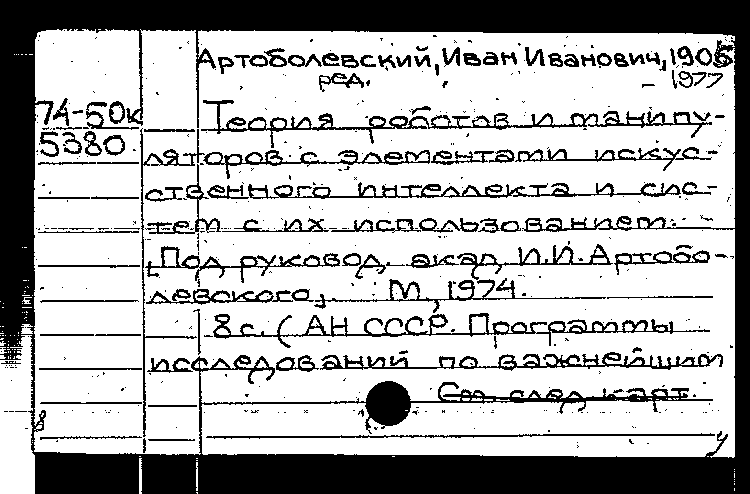 Артоболевский, Иван Иванович, 1905
ред. - 1977
74-50к
5380
Теория роботов и манипу-
ляторов с элементами искус-
ственного интеллекта и сис-
тем с их использованием.
[Под руковод. акад. И.И. Артобо-
левского]. М., 1974.
8 с. (АН СССР. Программы
исследований по важнейшим
См. след. карт.
8
у